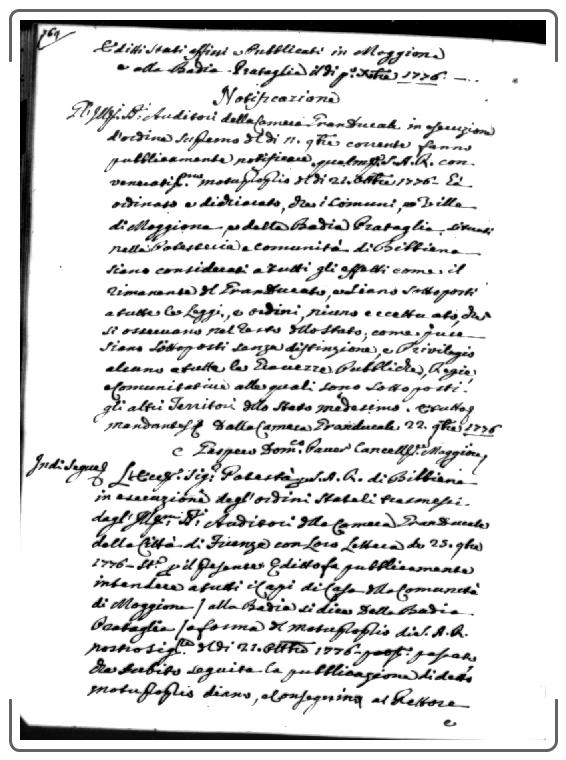 769
Editti Stati affissi e Pubblicati in Moggiona
e alla Badia Prataglia il dì p.º Xbre 1776. —
Notificazione
Gl' Ill.mi SS.i Auditori della Camera Granducale in esecuzione
d'ordine supremo de dì 11. 9bre corrente fanno
pubblicamente notificare, qualm.e S. A. R. con
venerat.mo motuproprio de dì 21. Ottbre 1776. Ed
ordinato e dichiarato, che i Comuni, e Ville
di Moggiona, e della Badia Prataglia, situati
nella Potesteria e comunità di Bibbiena
siano considerati a tutti gli effetti come il
rimanente del Granducato, e siano sottoposti
a tutte le Leggi, e ordini, niuno eccettuato, che
si osservano nel resto dello Stato, come pure
siano sottoposti senza distinzione, e Privilegio
alcuno a tutte le Gravezze Pubbliche, Regie
e Comunitative alle quali sono sottoposti
gli altri Territori dello Stato medesimo. e tutto
mandante Dalla Camera Granducale 22. 9bre 1776
Gaspero Dom.co Paver Cancell.re Moggiona
Indi Segue
L'Ecc.mo Sig.r Potestà p S. A. R. di Bibbiena
in esecuzione degl'ordini statili trasmessi
dagl' Ill.mi SS.i Auditori della Camera Granducale
della Città di Firenze con Loro Lettera de 23. 9bre
1776 - St.e p il presente Editto fa pubblicamente
intendere a tutti i Capi di Casa della Comunità
di Moggiona / alla Badia si dice della Badia
Prataglia / a forma del motuproprio di S. A. R.
nostro Sig.re de dì 21. Ottbre 1776. pross.o passato
che subito seguita la pubblicazione di detto
motuproprio diano, e consegnino al Rettore
e